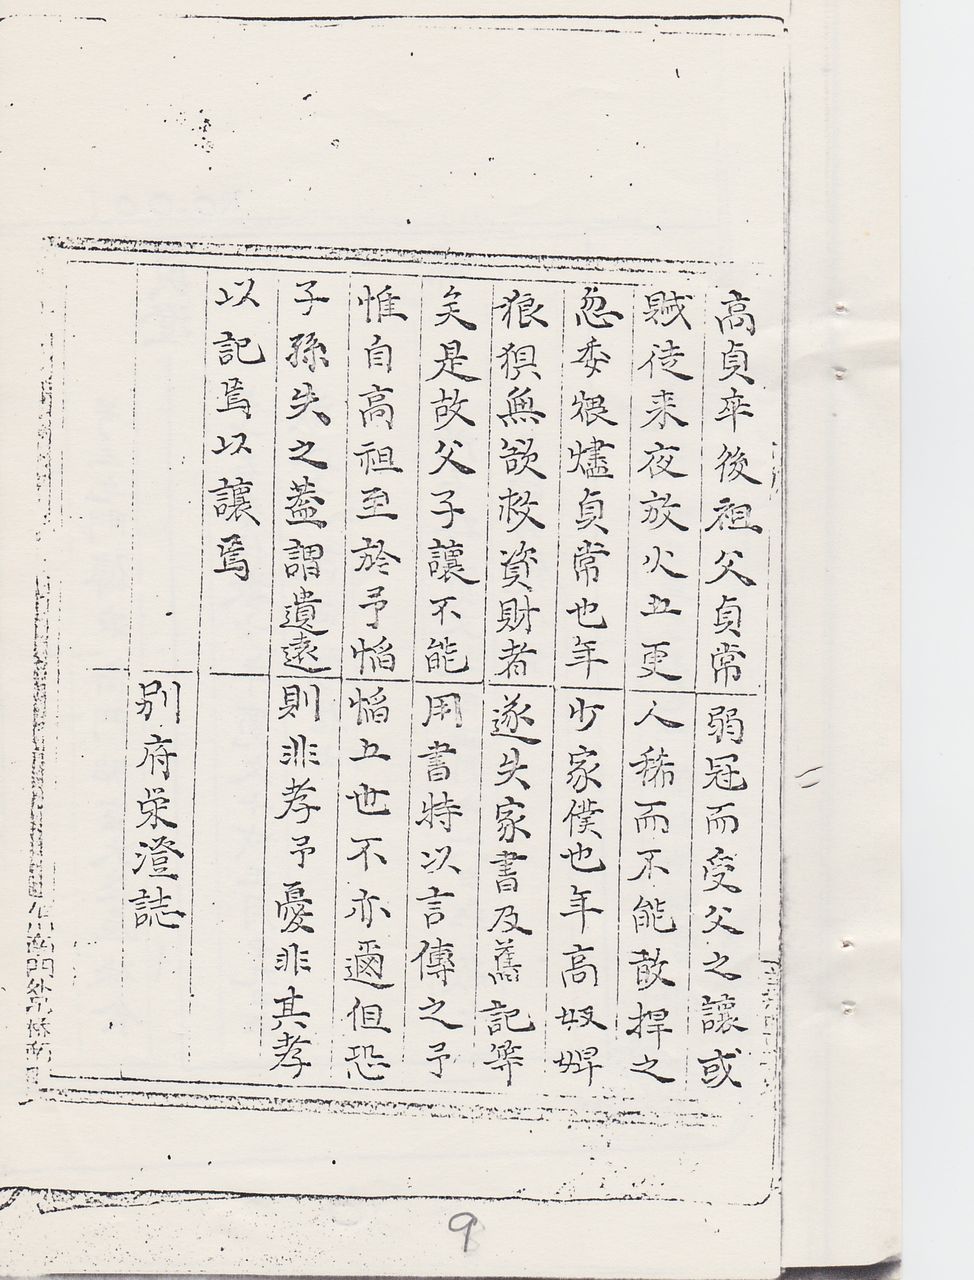 高貞卒後祖父貞常弱冠而受父之讓或
賊徒来夜放火五更人稀而不能敢捍之
忽委煨燼貞常也年少家僕也年高奴婢
狼狽無欲救資財者遂失家書及舊記等
矣是故父子讓不能用書特以言傳之予
惟自高祖至於予慆慆五世不亦邇但恐
子孫失之蓋謂遺遠則非孝予憂非其孝
以記焉以讓焉
別府栄澄誌
9